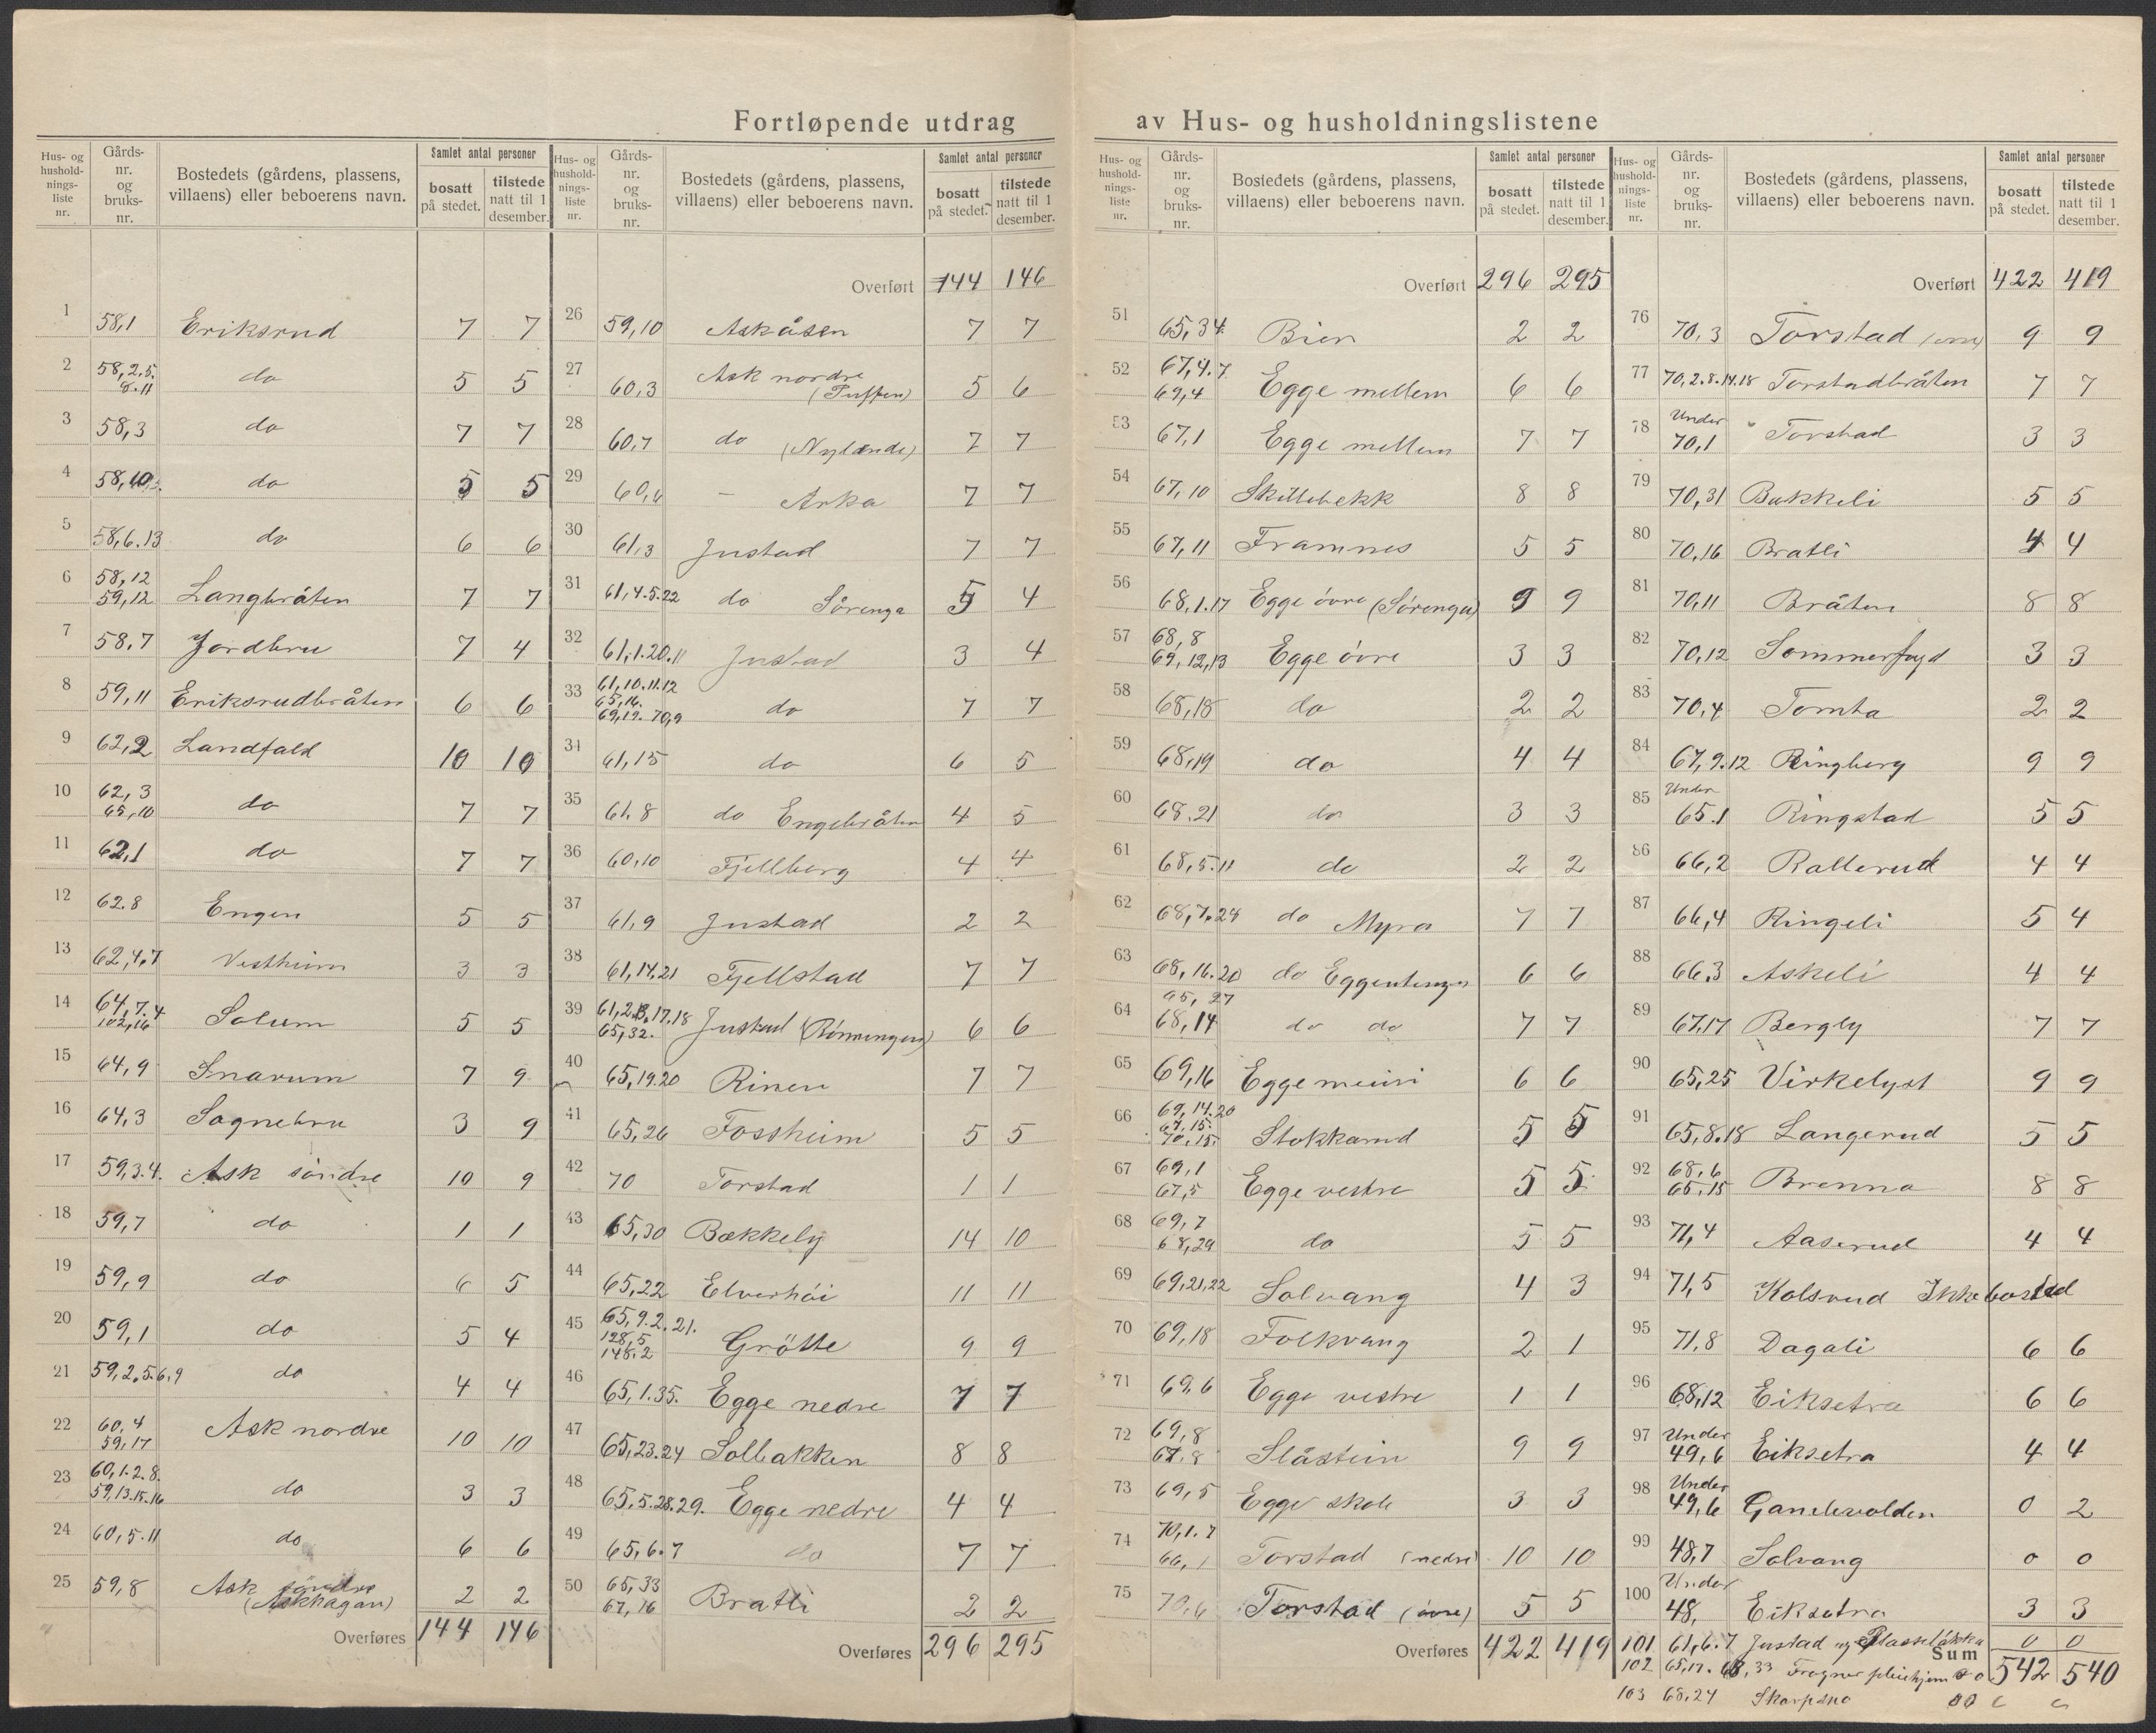 Fortløpende utdrag av Hus- og husholdningslistene
Hus- og hushold-nings-liste nr. Gårds-nr. og bruks-nr. Bostedets (gårdens, plassens, villaens) eller beboerens navn. Samlet antal personer bosatt på stedet. tilstede natt til 1 desember.
1 58,1 Eriksrud 7 7
2 58,2,5. 8.11 do 5 5
3 58,3 do 7 7
4 58,10 do 5 5
5 58,6.13 do 6 6
6 58,12 59,12 Langbråten 7 7
7 58,7 Jordbru 7 4
8 59,11 Eriksrudbråten 6 6
9 62,2 Landfald 10 10
10 62,3 65,10 do 7 7
11 62,1 do 7 7
12 62.8 Engen 5 5
13 62,4,7 Vestheim 3 3
14 64,7.4 102,16 Solum 5 5
15 64,9 Snarum 7 9
16 64,3 Sognebru 3 9
17 59,3.4. Ask söndre 10 9
18 59,7 do 1 1
19 59,9 do 6 5
20 59,1 do 5 4
21 59,2,5.6,9 do 4 4
22 60,4 59,17 Ask nordre 10 10
23 60,1.2.8. 59,13.15.16 do 3 3
24 60,5.11 do 6 6
25 59,8 Ask söndre (Askhagan) 2 2
Overføres 144 146
Hus- og hushold-nings-liste nr. Gårds-nr. og bruks-nr. Bostedets (gårdens, plassens, villaens) eller beboerens navn. Samlet antal personer bosatt på stedet. tilstede natt til 1 desember.
Overført 144 146
26 59,10 Askåsen 7 7
27 60,3 Ask nordre (Tuften) 5 6
28 60,7 do (Nylænde) 7 7
29 60,6 - Arka 7 7
30 61,3 Justad 7 7
31 61,4.5.22 do Sörenga 5 4
32 61,1.20.11 Justad 3 4
33 61,10.11.12 65,16. 69,19. 70,9 do 7 7
34 61,15 do 6 5
35 61,8 do Engebråten 4 5
36 60,10 Fjellberg 4 4
37 61,9 Justad 2 2
38 61,14.21 Fjellstad 7 7
39 61,2.13.17.18 65,32. Justad (Rönningen) 6 6
40 65,19.20 Rinen 7 7
41 65,26 Fossheim 5 5
42 70 Torstad 1 1
43 65,30 Bækkely 14 10
44 65,22 Elverhöi 11 11
45 65,9.2.21. 128,5 148,2 Grötte 9 9
46 65,1.35. Egge nedre 7 7
47 65,23.24 Solbakken 8 8
48 65,5.28.29. Egge nedre 4 4
49 65,6.7 do 7 7
50 65,33 67,16 Bratli 2 2
Overføres 296 295
Hus- og hushold-nings-liste nr. Gårds-nr. og bruks-nr. Bostedets (gårdens, plassens, villaens) eller beboerens navn. Samlet antal personer bosatt på stedet. tilstede natt til 1 desember.
Overført 296 295
51 65,34 Bien 2 2
52 67,4.7 69,4 Egge mellem 6 6
53 67,1 Egge mellem 7 7
54 67,10 Skillebekk 8 8
55 67,11 Framnes 5 5
56 68,1.17 Egge övre (Sörenga) 9 9
57 68,8 69,12,13 Egge övre 3 3
58 68,18 do 2 2
59 68,19 do 4 4
60 68.21 do 3 3
61 68,5.11 do 2 2
62 68,7.28 do Myra 7 7
63 68,16.20 do Eggentunga 6 6
64 65,27 68,14 do do 7 7
65 69,16 Egge 6 6
66 69,14.20 67,15 70,15 Stokkarud 5 5
67 69,1 67,5 Egge vestre 5 5
68 69,7 68,29 do 5 5
69 69,21,22 Solvang 4 3
70 69,18 Folkvang 2 1
71 69,6 Egge vestre 1 1
72 69,8 67,8 Slåstein 9 9
73 69,5 Egge skole 3 3
74 70,1.7 66,1 Torstad (nedre) 10 10
75 70,6 Torstad (övre) 5 5
Overføres 422 419
Hus- og hushold-nings-liste nr. Gårds-nr. og bruks-nr. Bostedets (gårdens, plassens, villaens) eller beboerens navn. Samlet antal personer bosatt på stedet. tilstede natt til 1 desember.
Overført 422 419
76 70,3 Torstad (övre) 9 9
77 70,2.8.14.18 Torstadbråten 7 7
78 Under 70,1 Torstad 3 3
79 70,31 Bakkeli 5 5
80 70,16 Bratli 4 4
81 70,11 Bråten 8 8
82 70,12 Sommerfryd 3 3
83 70,4 Tomta 2 2
84 67,9.12 Ringberg 9 9
85 Under 65.1 Ringstad 5 5
86 66,2 Rallerud 4 4
87 66,4 Ringeli 5 4
88 66.3 Askeli 4 4
89 67,17 Bergly 7 7
90 65,25 Virkelyst 9 9
91 65,8.18 Langerud 5 5
92 68,6 65,15 Brenna 8 8
93 71,4 Aaserud 4 4
94 71,5 Kolsrud Ikke bosted
95 71,8 Dagali 6 6
96 68,12 Eiksetra 6 6
97 Under 49,6 Eiksetra 4 4
98 Under 49,6 Gamlevolden 0 2
99 48,7 Solvang 0 0
100 Under 48, Eiksetra 3 3
101 61,6.7 Justad og Plasselökka 0 0
Sum 542 540
102 65,17. 68,33 Frogner pleiehjem 0 0
103 68,24 Skarpsno 0 0